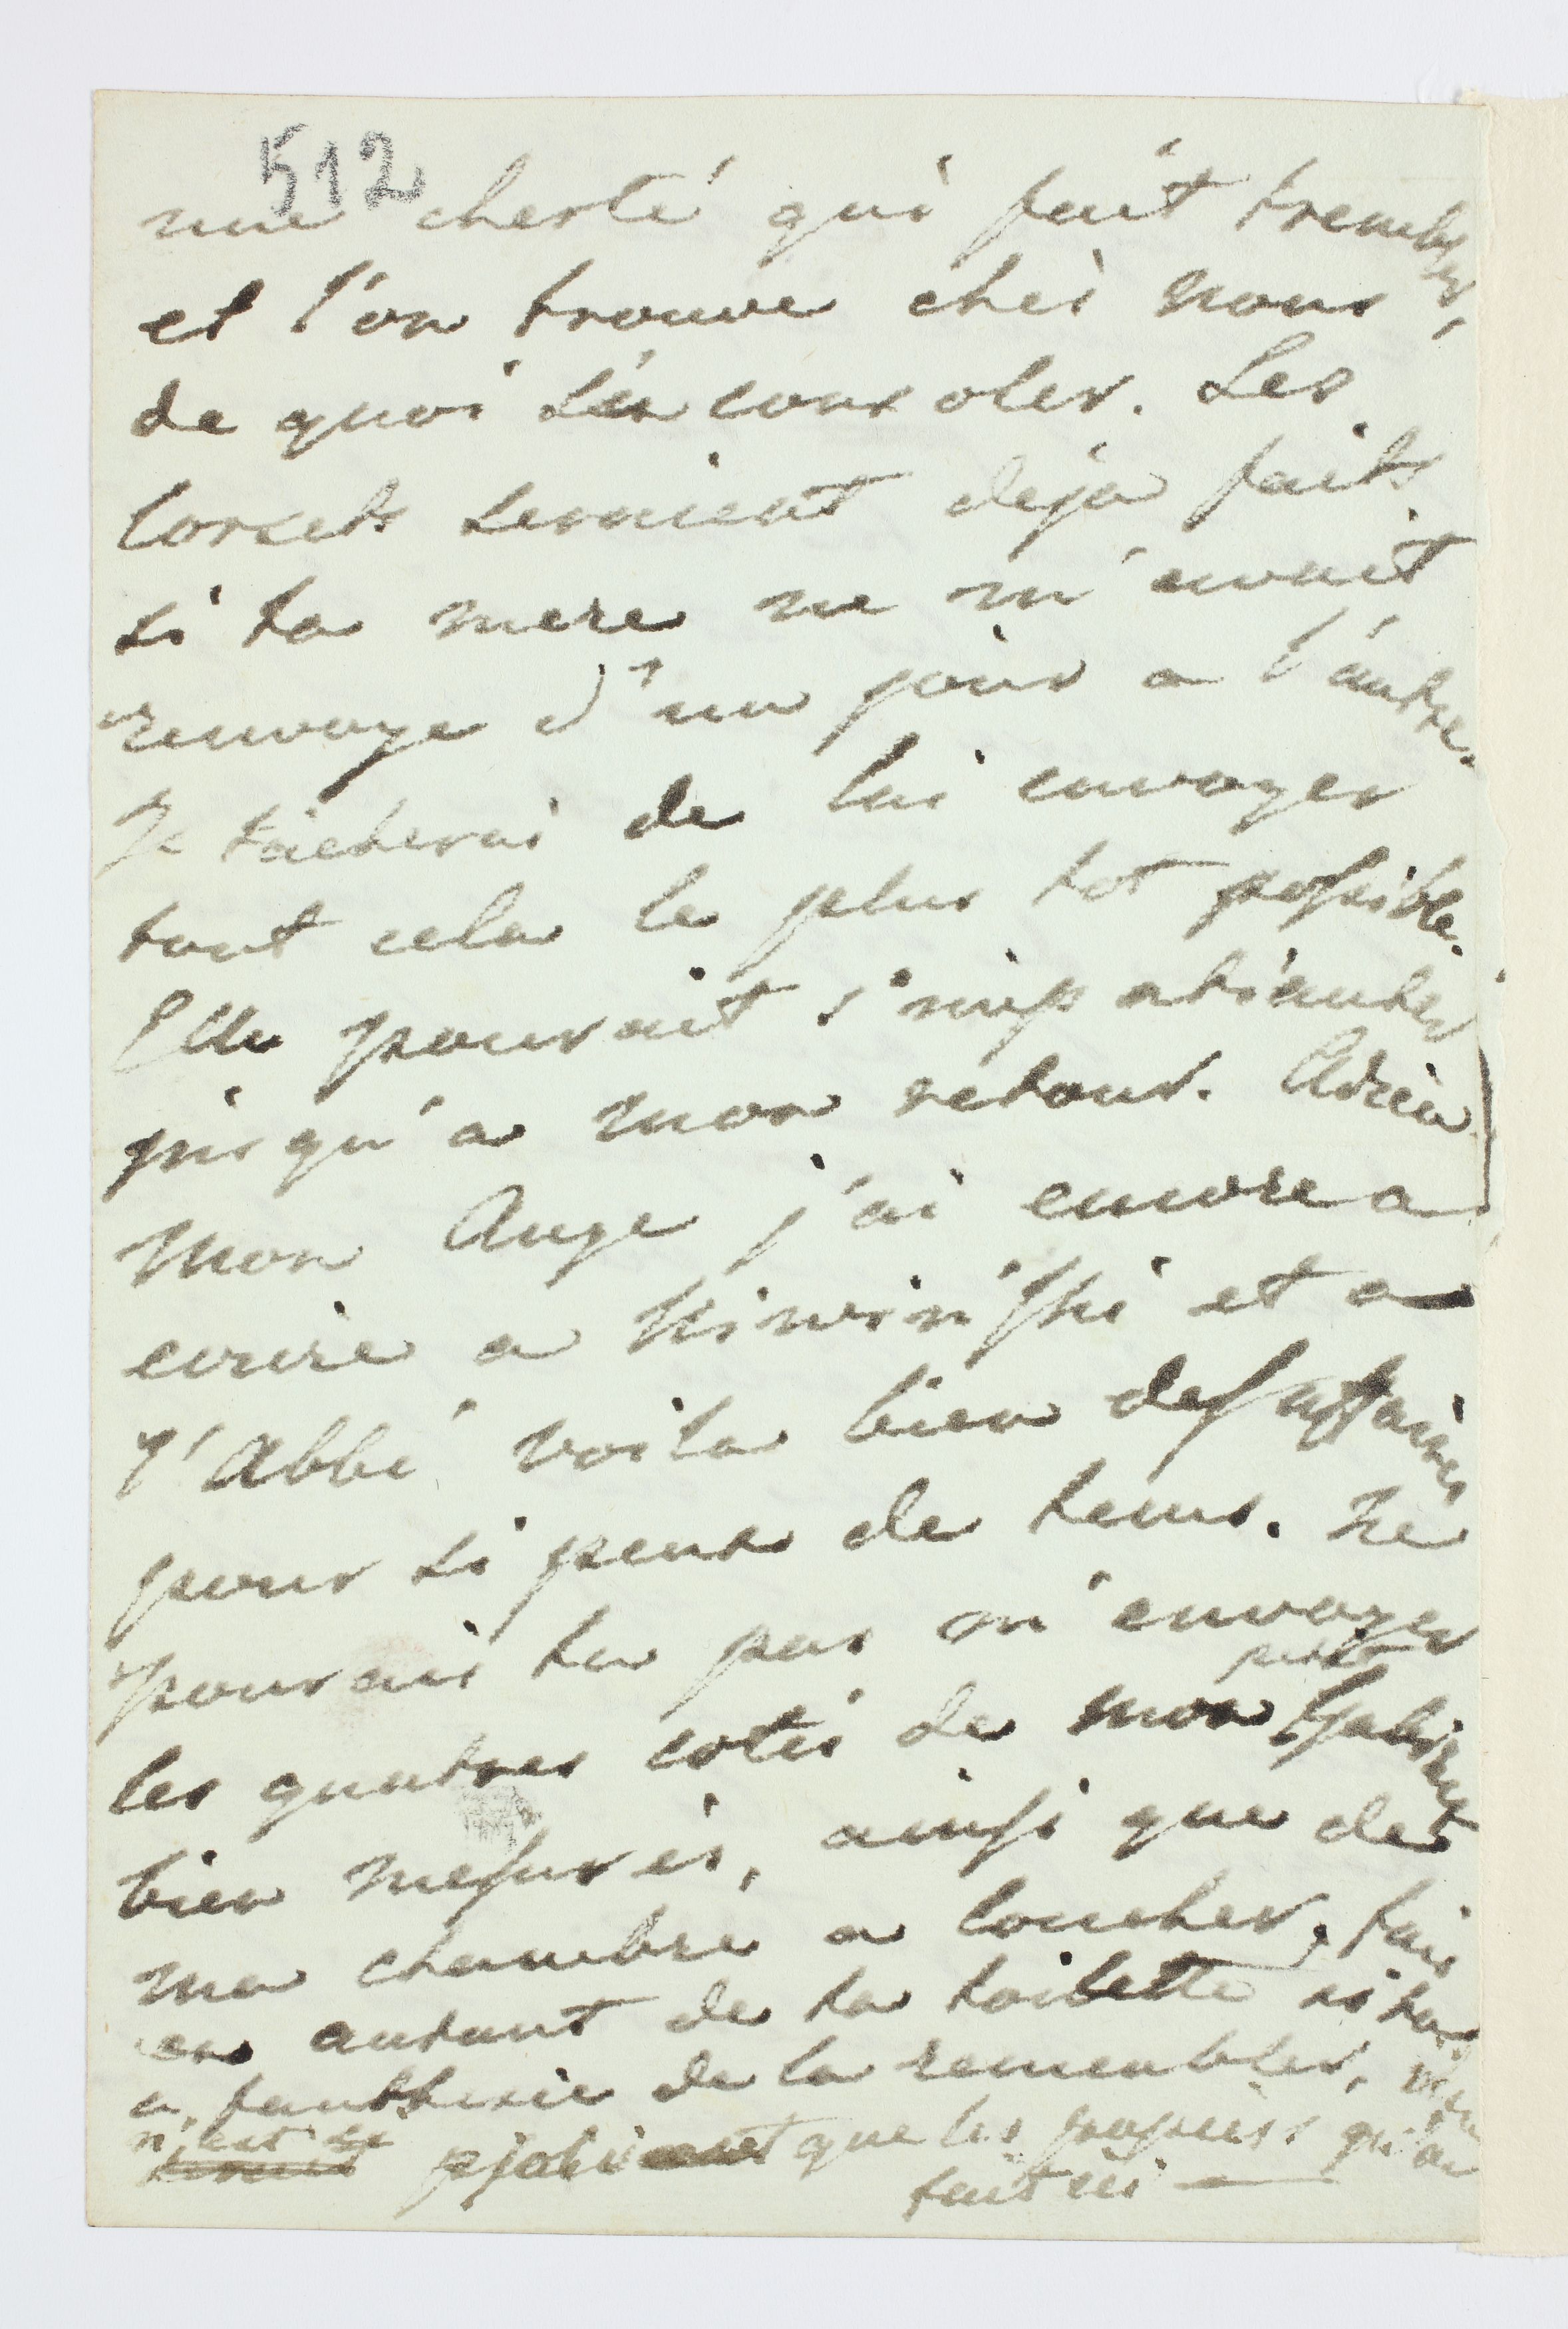 512
une cherté qui fait trembler,
et l'on trouve chés nous
de quoi s'en consoler. Les
Corsets seroient deja faits
si ta mere ne m'avait
renvoye d'un jour a l'autre.
Je tacherai de lui envoyer
tout cela le plus tot possible.
Elle pourait s'impatienter
jusqu'a mon retour. Adieu
mon Ange j'ai encore a
ecrire a et a
l'Abbé voila bien des affaires
pour si peu de tems. Ne
pourais tu pas m'envoyer
les quatres cotés de mon petit Gabinet
bien mesurés, ainsi que de
ma chambre a coucher, fais
en autant de ta toilette si tu
a fanthesie de la remeubler, rien
n'est si joli que les papiers qu'on
fait ici —